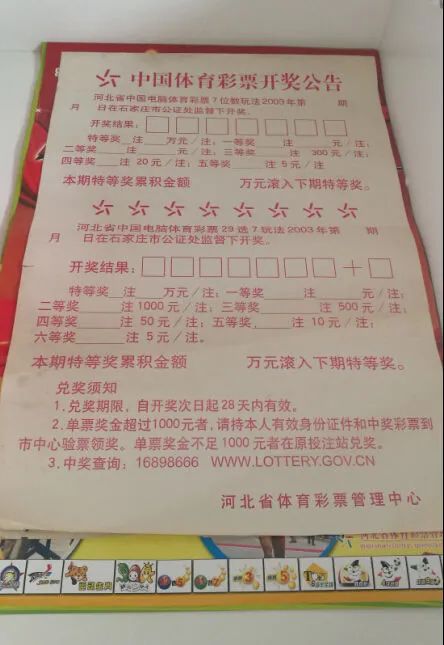 中国体育彩票开奖公告
河北省中国电脑体育彩票7位数玩法2003年第 期
月 日在石家庄市公证处监督下开奖.
开奖结果:
特等奖__注____万元/注;一等奖____注____元/注;
二等奖____注____元/注;三等奖____注 300 元/注;
四等奖____注 20 元/注;五等奖____注 5 元/注
本期特等奖累积金额 万元滚入下期特等奖。
河北省中国电脑体育彩票29选7玩法2003年第 期
月 日在石家庄市公证处监督下开奖。
开奖结果: +
特等奖__注____万元/注;一等奖____注____元/注;
二等奖____注 1000 元/注;三等奖____注 500 元/注;
四等奖____注 50 元/注;五等奖.____注 10 元/注;
六等奖____注 5 元/注。
本期特等奖累积金额 万元滚入下期特等奖。
兑奖须知
1.兑奖期限,自开奖次日起28天内有效。
2.单票奖金超过1000元者,请持本人有效身份证件和中奖彩票到
市中心验票领奖。单票奖金不足1000元者在原投注站兑奖。
3.中奖查询:16898666 WWW.LOTTERY.GOV.CN
河北省体育彩票管理中心